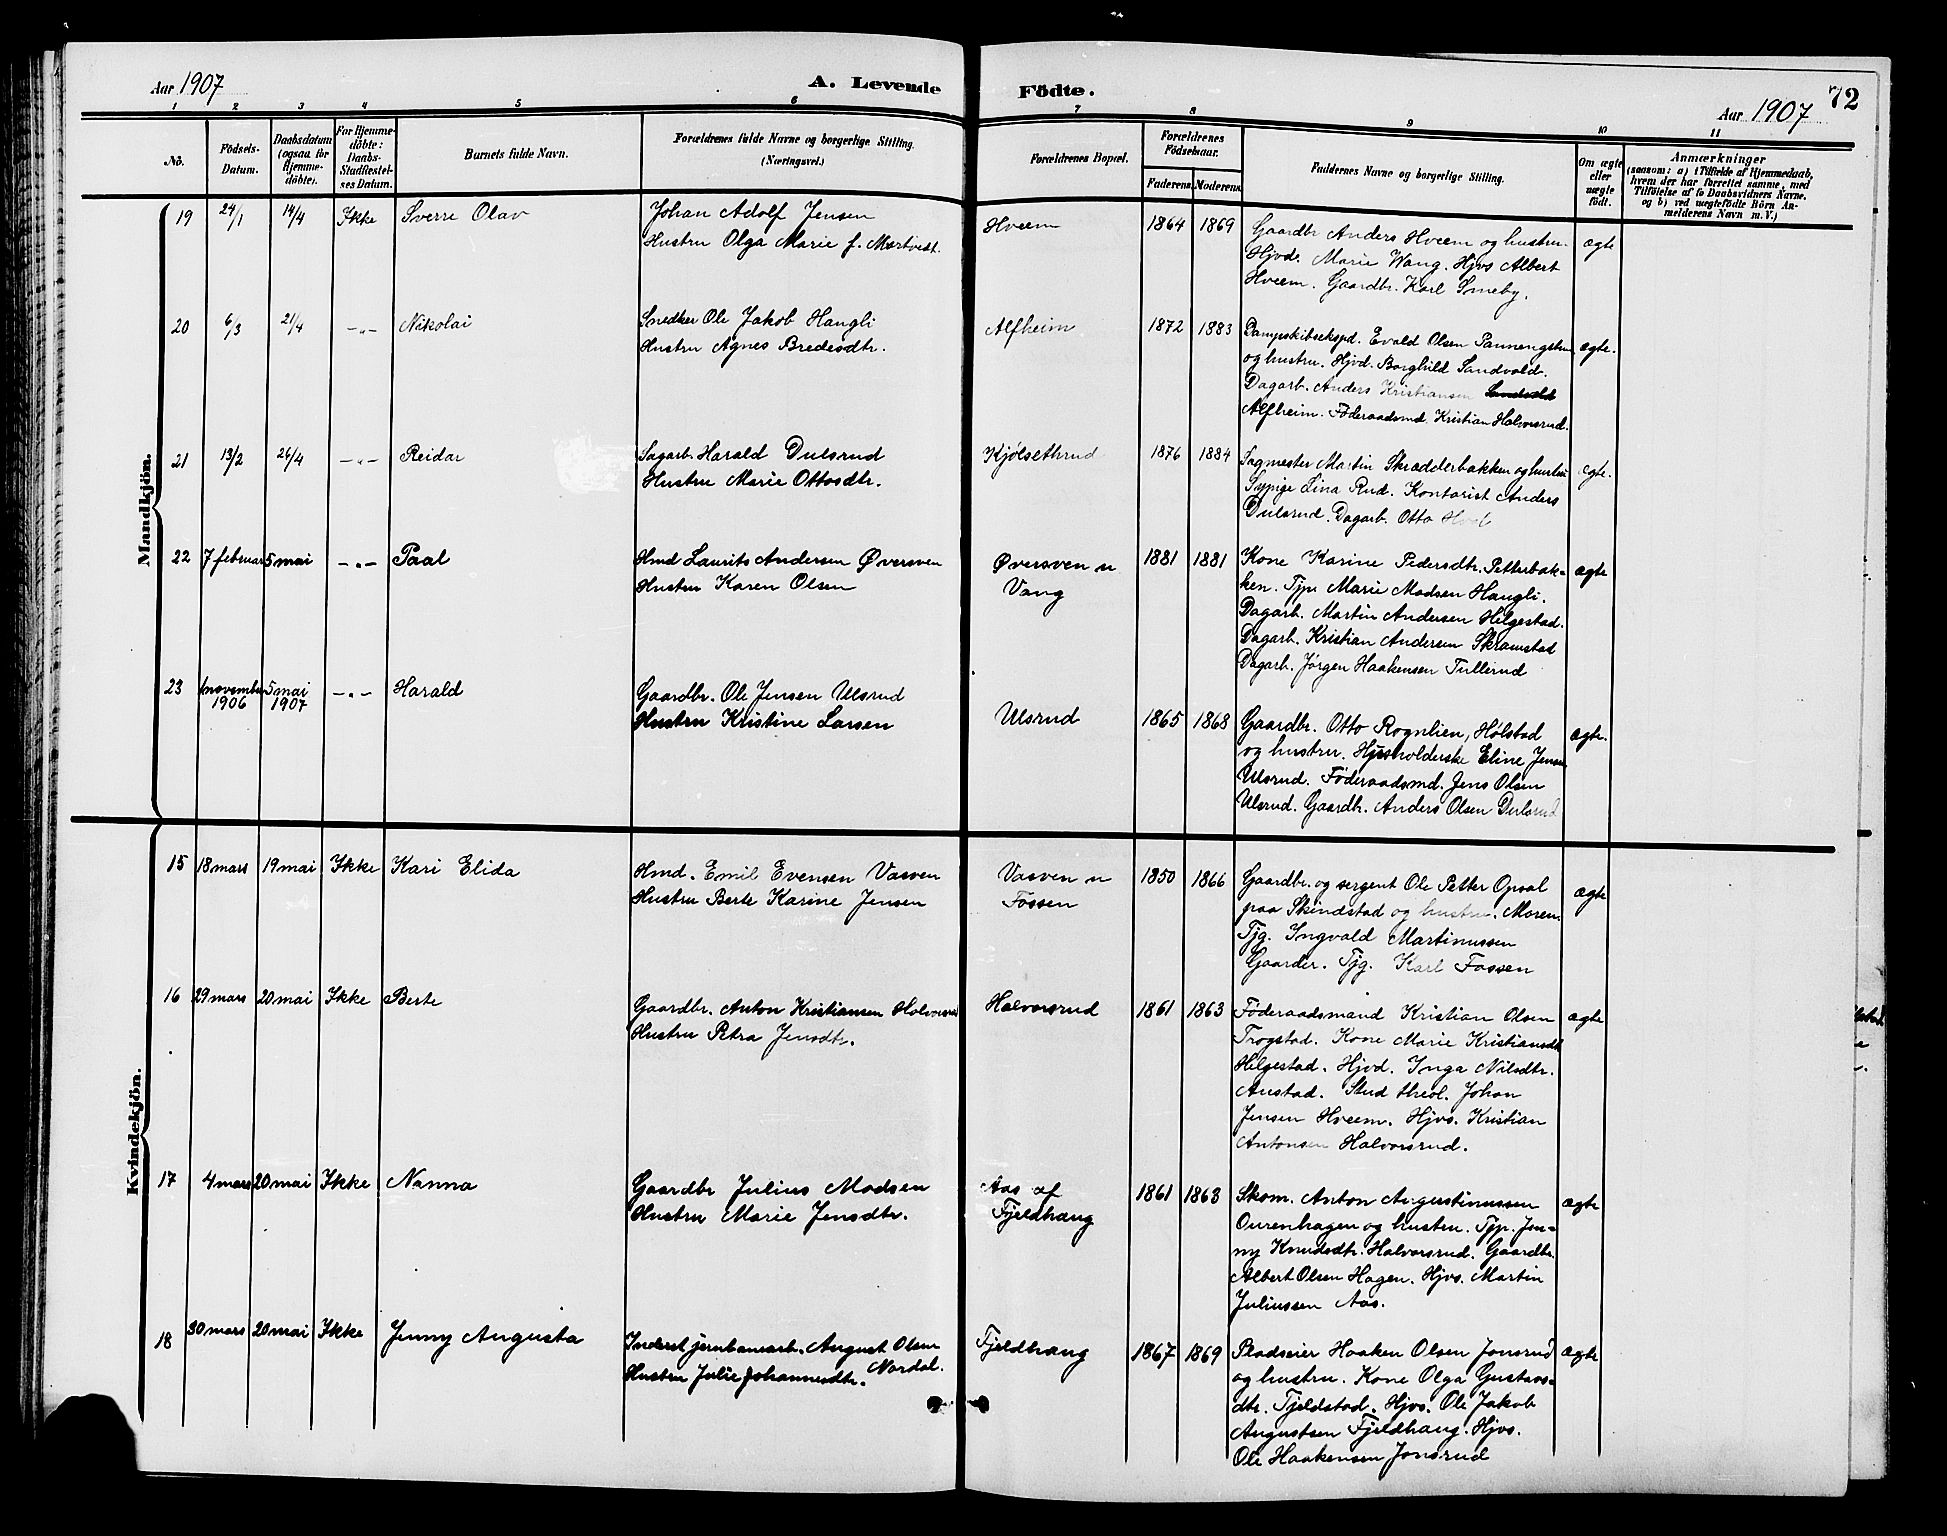 Aar 1907
A. Levende
Födte.
72
Aar 1907
1 2 3 4 5 6 7 8 9 10 11
No.
Födsels-
Datum.
Daabsdatum
(ogsaa for
Hjemme-
döbte).
For Hjemme-
döbte:
Daabs-
Stadfæstel-
ses Datum.
Barnets fulde Navn.
Forældrenes fulde Navne og borgerlige Stilling.
(Næringsvei.)
Forældrenes Bopæl.
Forældrenes
Födselsaar.
Faderens. Moderens.
Faddernes Navne og borgerlige Stilling.
Om ægte
eller
uægte
födt.
Anmærkninger
(saasom: a) i Tilfælde af Hjemmedaab,
hvem der har forrettet samme, med
Tilföielse af to Daabsvidners Navne,
og b) ved uægtefödte Börn An-
melderens Navn m. V.)
Mandkjön.
19 24/1 14/4 Ikke Sverre Olav
Johan Adolf Jensen
Hustru Olga Marie f. Mørtvedt.
Hveem
1864 1869
Gaardbr Anders Hveem og hustru.
Hjvd. Marie Wang. Hjvs Albert
Hveem. Gaardbr. Karl Smeby.
ægte
20 6/3 21/4 -"- Nikolai
Snedker Ole Jakob Haugli
Hustru Agnes Bredesdtr.
Alfheim
1872 1883
Dampskibseksped. Evald Olsen
og hustru. Hjvd. Borghild Sandvold.
Dagarb. Anders Kristiansen
Alfheim. Föderaadsmd Kristian Halvorsrud.
ægte.
21 13/2 26/4 -"- Reidar
Sagarb. Harald Dulsrud
Hustru Marie Ottosdtr.
Kjølsethrud
1876 1884
Sagmester Martin Skrædderbakken og hustru
Sypige Lina Rud. Kontorist Anders
Dulsrud. Dagarb. Otto
ægte.
22 7 februar 5 mai -"- Paal
Hmd Laurits Andersen Øversven
Hustru Karen Olsen
Øversven u
Vang
1881 1881
Kone Karine Pedersdtr. Petterbak-
ken. Tjp. Marie Madsen Haugli.
Dagarb. Martin Andersen Helgestad.
Dagarb. Kristian Andersen Skramstad
Dagarb. Jørgen Haakensen Tullerud
ægte
23 november 5 mai -"- Harald
1906 1907
Gaardbr. Ole Jensen Ulsrud
Hustru Kristine Larsen
Ulsrud
1865 1868
Gaardbr. Otto Rognlien, Holstad
og hustru. Husholderske Eline Jensen
Ulsrud. Föderaadsmd. Jens Olsen
Ulsrud. Gaardbr. Anders Olsen Dulsrud
ægte.
Kvindekjön.
15 18 mars 19 mai Ikke Kari Elida
Hmd. Emil Evensen Vasven
Hustru Berte Karine Jensen
Vasven u
Fossen
1850 1866
Gaardbr. og sergent Ole Petter Opsal
paa Skindstad og hustru. Moren.
Tjg. Ingvald Martinussen
Gaarder. Tjg. Karl Fossen
ægte
16 29 mars 20 mai Ikke Berte
Gaardbr. Anton Kristiansen Halvorsrud
Hustru Petra Jensdtr.
Halvorsrud
1861 1863
Föderaadsmand Kristian Olsen
Trogstad. Kone Marie Kristiansdtr
Helgestad. Hjvd. Inga Nilsdtr.
Anstad. Stud theol. Johan
Jensen Hveem. Hjvs. Kristian
Antonsen Halvorsrud.
ægte
17 4 mars 20 mai Ikke Nanna
Gaardbr Julius Madsen
Hustru Marie Jensdtr.
Aas af
Fjeldhaug
1861 1863
Skom. Anton Augustinussen
Ourenhagen og hustru. Tjp. Jen-
ny Knudsdtr. Halvorsrud. Gaardbr.
Albert Olsen Hagen. Hjvs. Martin
Juliussen Aas.
ægte
18 30 mars 20 mai Ikke Jenny Augusta
Inderst jernbanearb. August Olsen
Nordal.
Hustru Julie Johannesdtr.
Fjeldhaug
1867 1869
Pladseier Haaken Olsen Jonsrud
og hustru. Kone Olga Gustavs-
dtr. Fjeldstad. Hjvs. Ole Jakob
Augustsen Fjeldhaug. Hjvs.
Ole Haakensen Jonsrud
ægte